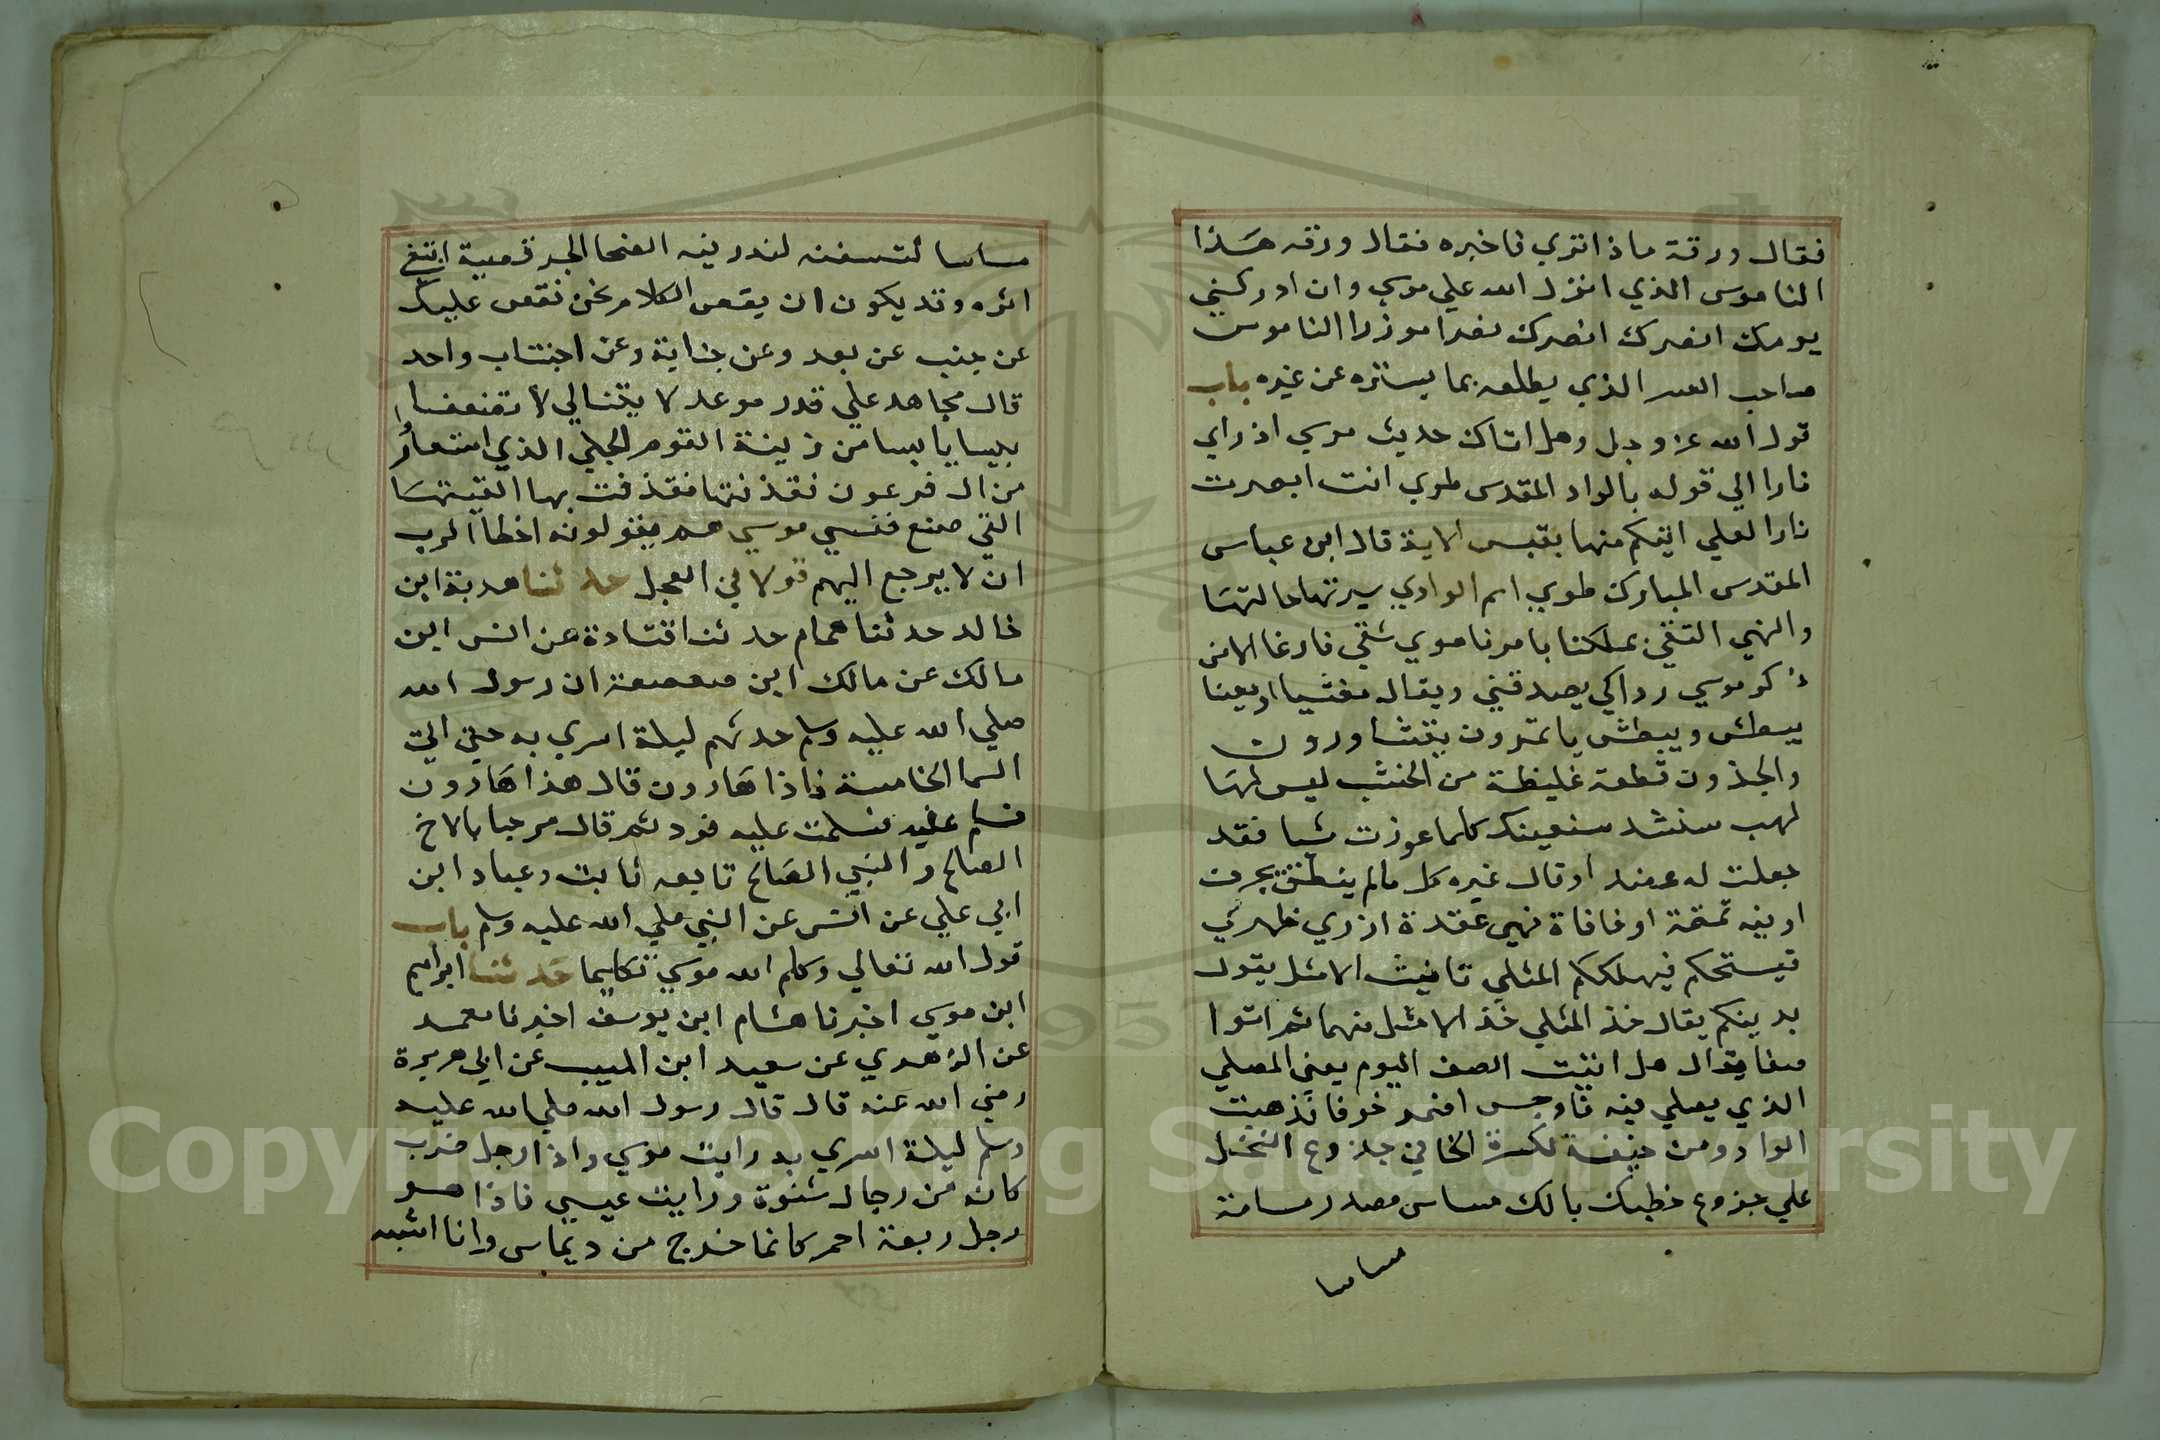 فقال ورقة ماذا تري فاخبره فقال ورقه هذا
الناموس الذي انزل الله علي موسي وان ادركني
يومك انصرك انصرك نصرا موزرا الناموس
صاحب السر الذي يطلعه بما يستره عن غيره باب
قول الله عز وجل وهل اتاك حديث موسي اذ راي
نارا الي قوله بالواد المقدس طوي انت ابصرت
نارا لعلي اتيكم منها بقبس الاية قال ابن عباس
المقدس المبارك طوي اسم الوادي سيرتها حالتها
والنهي التقي بملكنا بامرنا هوي شقي فارغا الا من
ذكر موسي ردا كي يصدقني ويقال مغثيا او معينا
يبطش ويبطش ياتمرون يتشاورون
والجذوت قطعة غليظة من الخشب ليس لها
لهب سنشد سنعينك كلما عوزت شيا فقد
جعلت له عضد او قال غيره كل مالم ينطق بحرف
او فيه تمتمة او فافاة فهي عقدة ازري ظهري
فيستحكم فيهلككم المثلي تانيث الامثل يقول
بدينكم يقال خذ المثلي خذ الامثل منهما ثم ائتوا
صفا يقال هل اتيت الصف اليوم يعني المصلي
الذي يصلي فيه فاوجس اضمر خوفا فذهبت
الواو ومن خيفة لكسرة الخا في جذوع النخل
علي جذوع خطبك بالك مساس مصدر مسامة
مساسا
مساسا لننسفنه لنذرينه الضحا الحر قصيه اتبعي
اثره وقد يكون ان يقص الكلام نحن نقص عليك
عن جنب عن بعد وعن جناية وعن اجتناب واحد
قال مجاهد علي قدر موعد لا يتنالي لا تضعفا
يبسا يابسا من زينة القوم الحلي الذي استعارو
من ال فرعون فقذفتها فقذفت بها القيتها
القي صنع فنسي موسي هم يقولونه اخطا الرب
ان لا يرجع اليهم قولا في العجل حدثنا هدبة ابن
خالد حدثنا همام حدثنا قتادة عن انس ابن
مالك عن مالك ابن صعصعة ان رسول الله
صلي الله عليه وسلم حدثهم ليلة اسري به حتي اتي
السما الخامسة فاذا هارون قال هذا هارون
فسلم عليه فسلمت عليه فرد ثم قال مرحبا بالاخ
الصالح والنبي الصالح تابعه ثابت وعباد ابن
ابي علي عن انس عن النبي صلي الله عليه وسلم باب
قول الله تعالي وكلم الله موسي تكليما حدثنا ابراهيم
ابن موسي اخبرنا هشام ابن يوسف اخبرنا معمد
عن الزهدي عن سعيد ابن المسيب عن ابي هريرة
رضي الله عنه قال قال رسول الله صلي الله عليه
وسلم ليلة اسري به رايت موسي واذا رجل ضرب
كانه من رجال شنوة ورايت عيسي فاذا هو
رجل ربعة احمر كانما خرج من ديماس وانا اشبه
Copyright © King Saud University